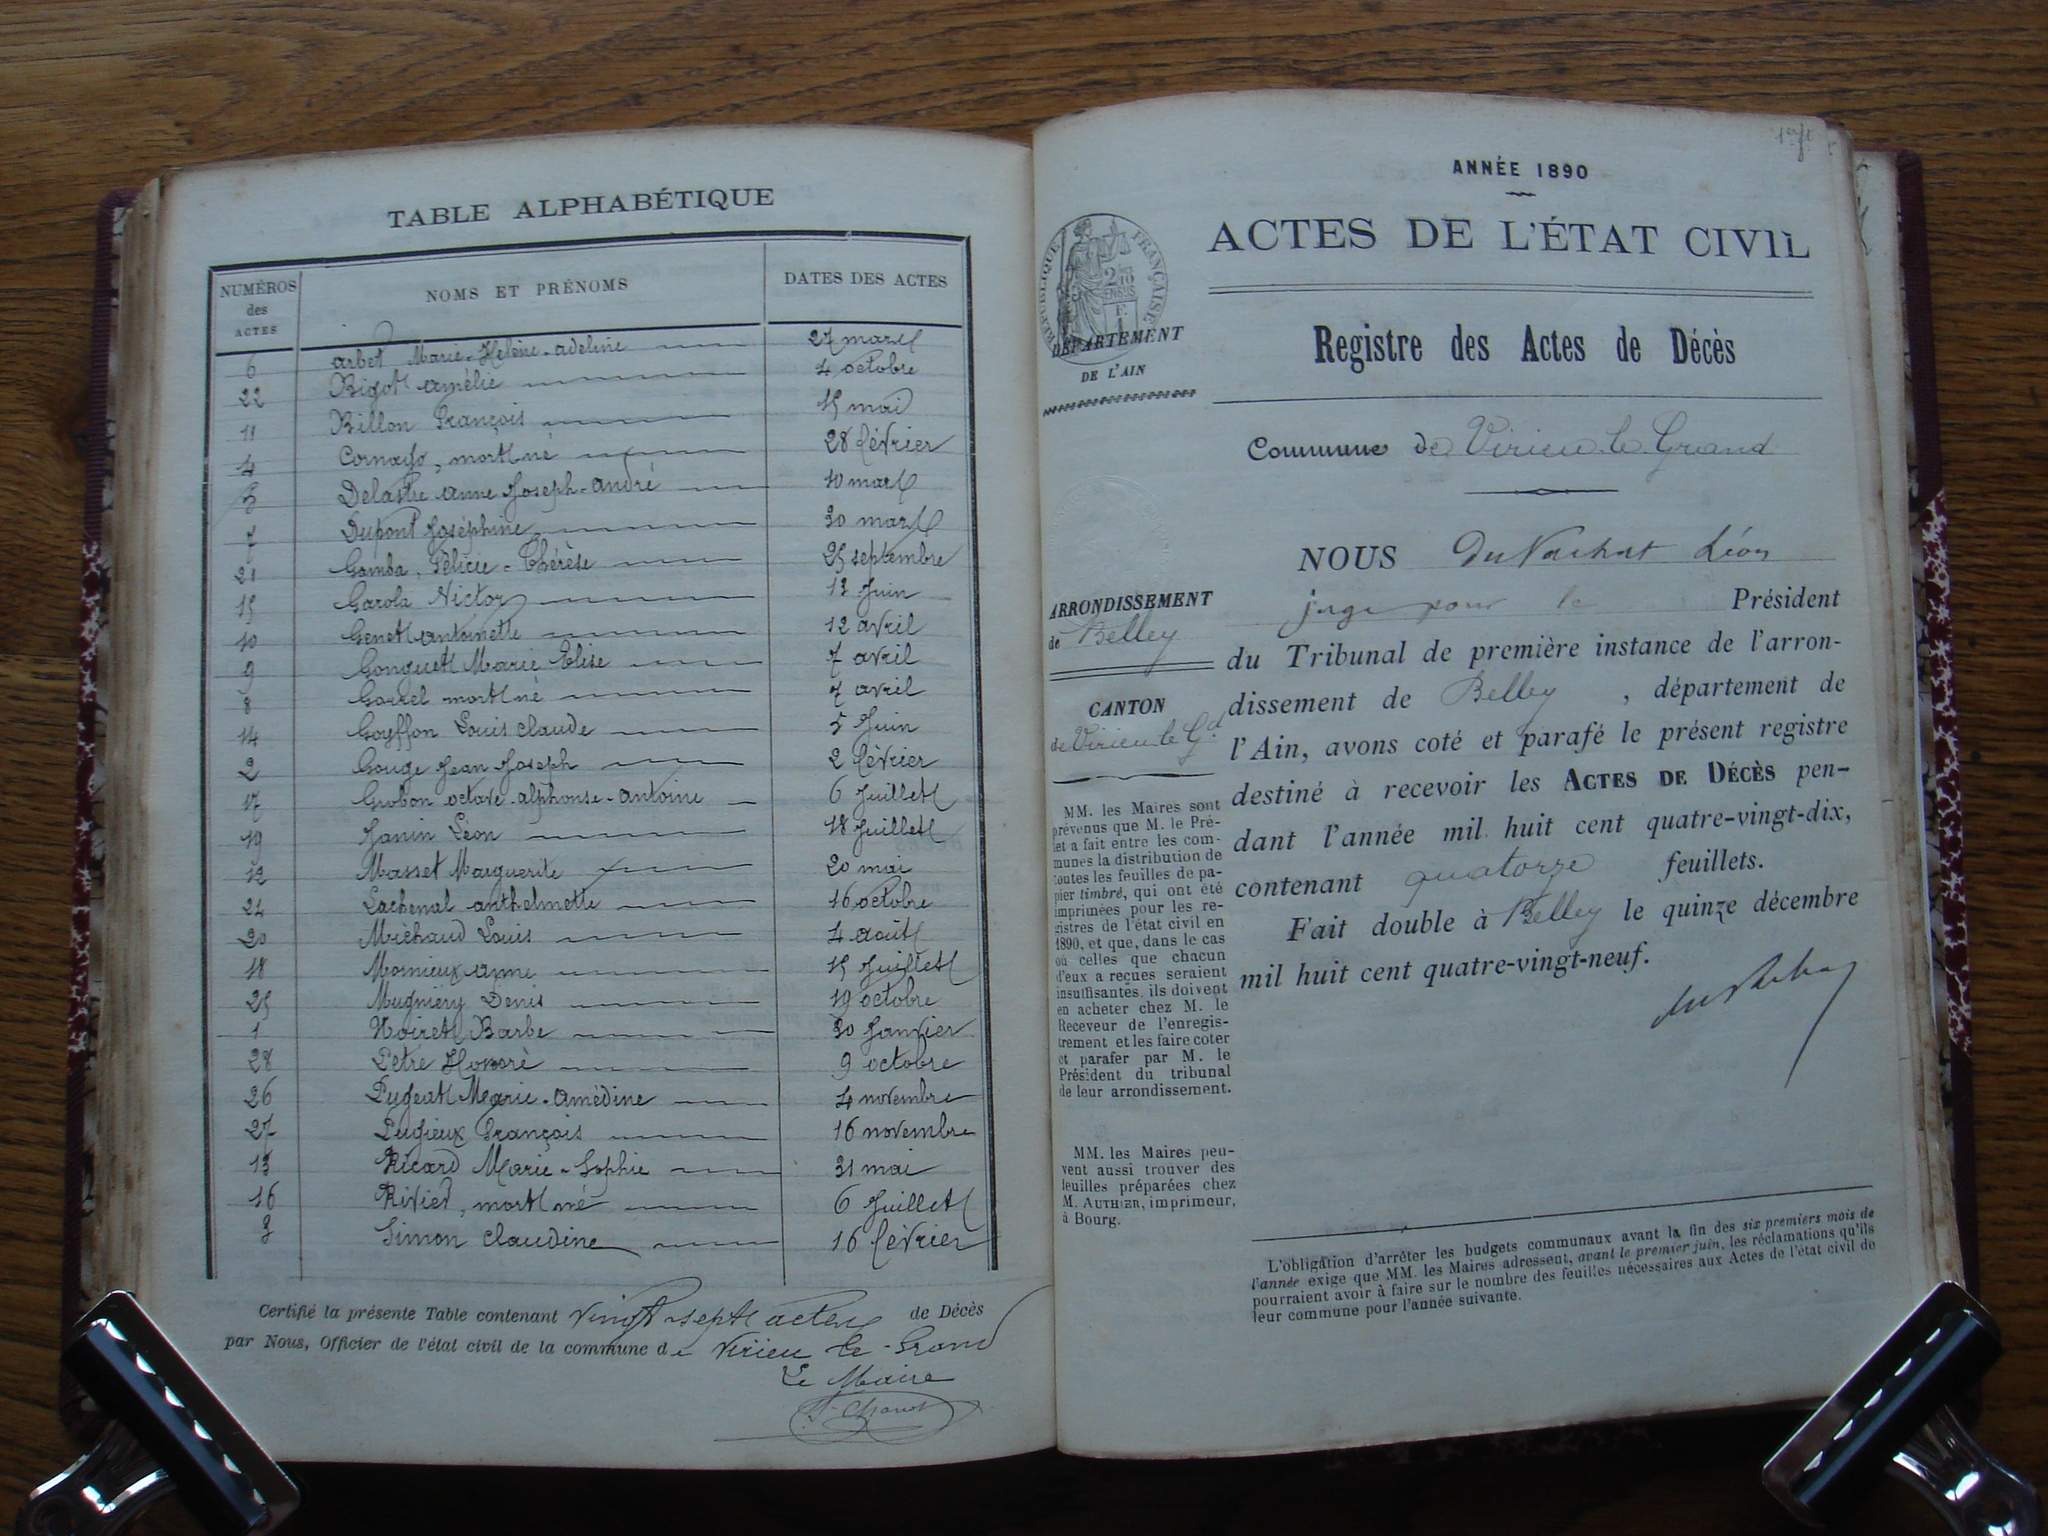 TABLE ALPHABÉTIQUE
NUMÉROS des ACTES NOMS ET PRÉNOMS DATES DES ACTES
6 arbet Marie-Helène-adeline 27 mars
22 Bigot amélie 4 octobre
11 Billon François 15 mai
4 mort né 28 février
5 Delastre anne Joseph-andré 10 mars
7 Dupont Joséphine 30 mars
21 Gamba, Félicie-Thérèse 25 septembre
15 Garola Victor 13 Juin
10 Genet antoinette 12 avril
9 Gonguet Marie Elise 7 avril
8 Gorrel mort né 7 avril
14 Goyffon Louis claude 5 Juin
2 Gouge Jean Joseph 2 février
17 Grobon octave-alphonse-antoine 6 Juillet
19 Janin Léon 18 Juillet
12 Masset Marguerite 20 mai
24 Lachenal anthelmette 16 octobre
20 Michaud Louis 4 août
18 Mornieux anne 15 Juillet
25 Mugniery Denis 19 octobre
1 Noiret Barbe 30 Janvier
28 Petre Honoré 9 octobre
26 Pugeat Marie-amédine 4 novembre
27 Pugieux François 16 novembre
13 Ricard Marie-Sophie 31 mai
16 Rivier, mort né 6 Juillet
3 Simon claudine 16 février
Certifié la présente Table contenant vingt-sept actes de Décès
par Nous, Officier de l'état civil de la commune de Virieu le-Grand
Le Maire
1er f
ANNÉE 1890
ACTES DE L'ÉTAT CIVIL
RÉPUBLIQUE FRANÇAISE
2/10 EN SUS
DÉPARTEMENT
DE L'AIN
Registre des Actes de Décès
Commune de Virieu-le-Grand
ARRONDISSEMENT
de Belley
CANTON
de Virieu le Gd
NOUS Du Vachat Léon
juge pour le Président
du Tribunal de première instance de l'arron-
dissement de Belley, département de
l'Ain, avons coté et parafé le présent registre
destiné à recevoir les ACTES DE DÉCÈS pen-
dant l'année mil huit cent quatre-vingt-dix,
contenant quatorze feuillets.
Fait double à Belley le quinze décembre
mil huit cent quatre-vingt-neuf.
MM. les Maires sont
prévenus que M. le Pré-
fet a fait entre les com-
munes la distribution de
toutes les feuilles de pa-
pier timbré, qui ont été
imprimées pour les re-
gistres de l'état civil en
1890, et que, dans le cas
où celles que chacun
d'eux a reçues seraient
insuffisantes, ils doivent
en acheter chez M. le
Receveur de l'enregis-
trement et les faire coter
et parafer par M. le
Président du tribunal
de leur arrondissement.
MM. les Maires peu-
vent aussi trouver des
feuilles préparées chez
M. AUTHIER, imprimeur,
à Bourg.
L'obligation d'arrêter les budgets communaux avant la fin des six premiers mois de
l'année exige que MM. les Maires adressent, avant le premier juin, les réclamations qu'ils
pourraient avoir à faire sur le nombre des feuilles nécessaires aux Actes de l'état civil de
leur commune pour l'année suivante.